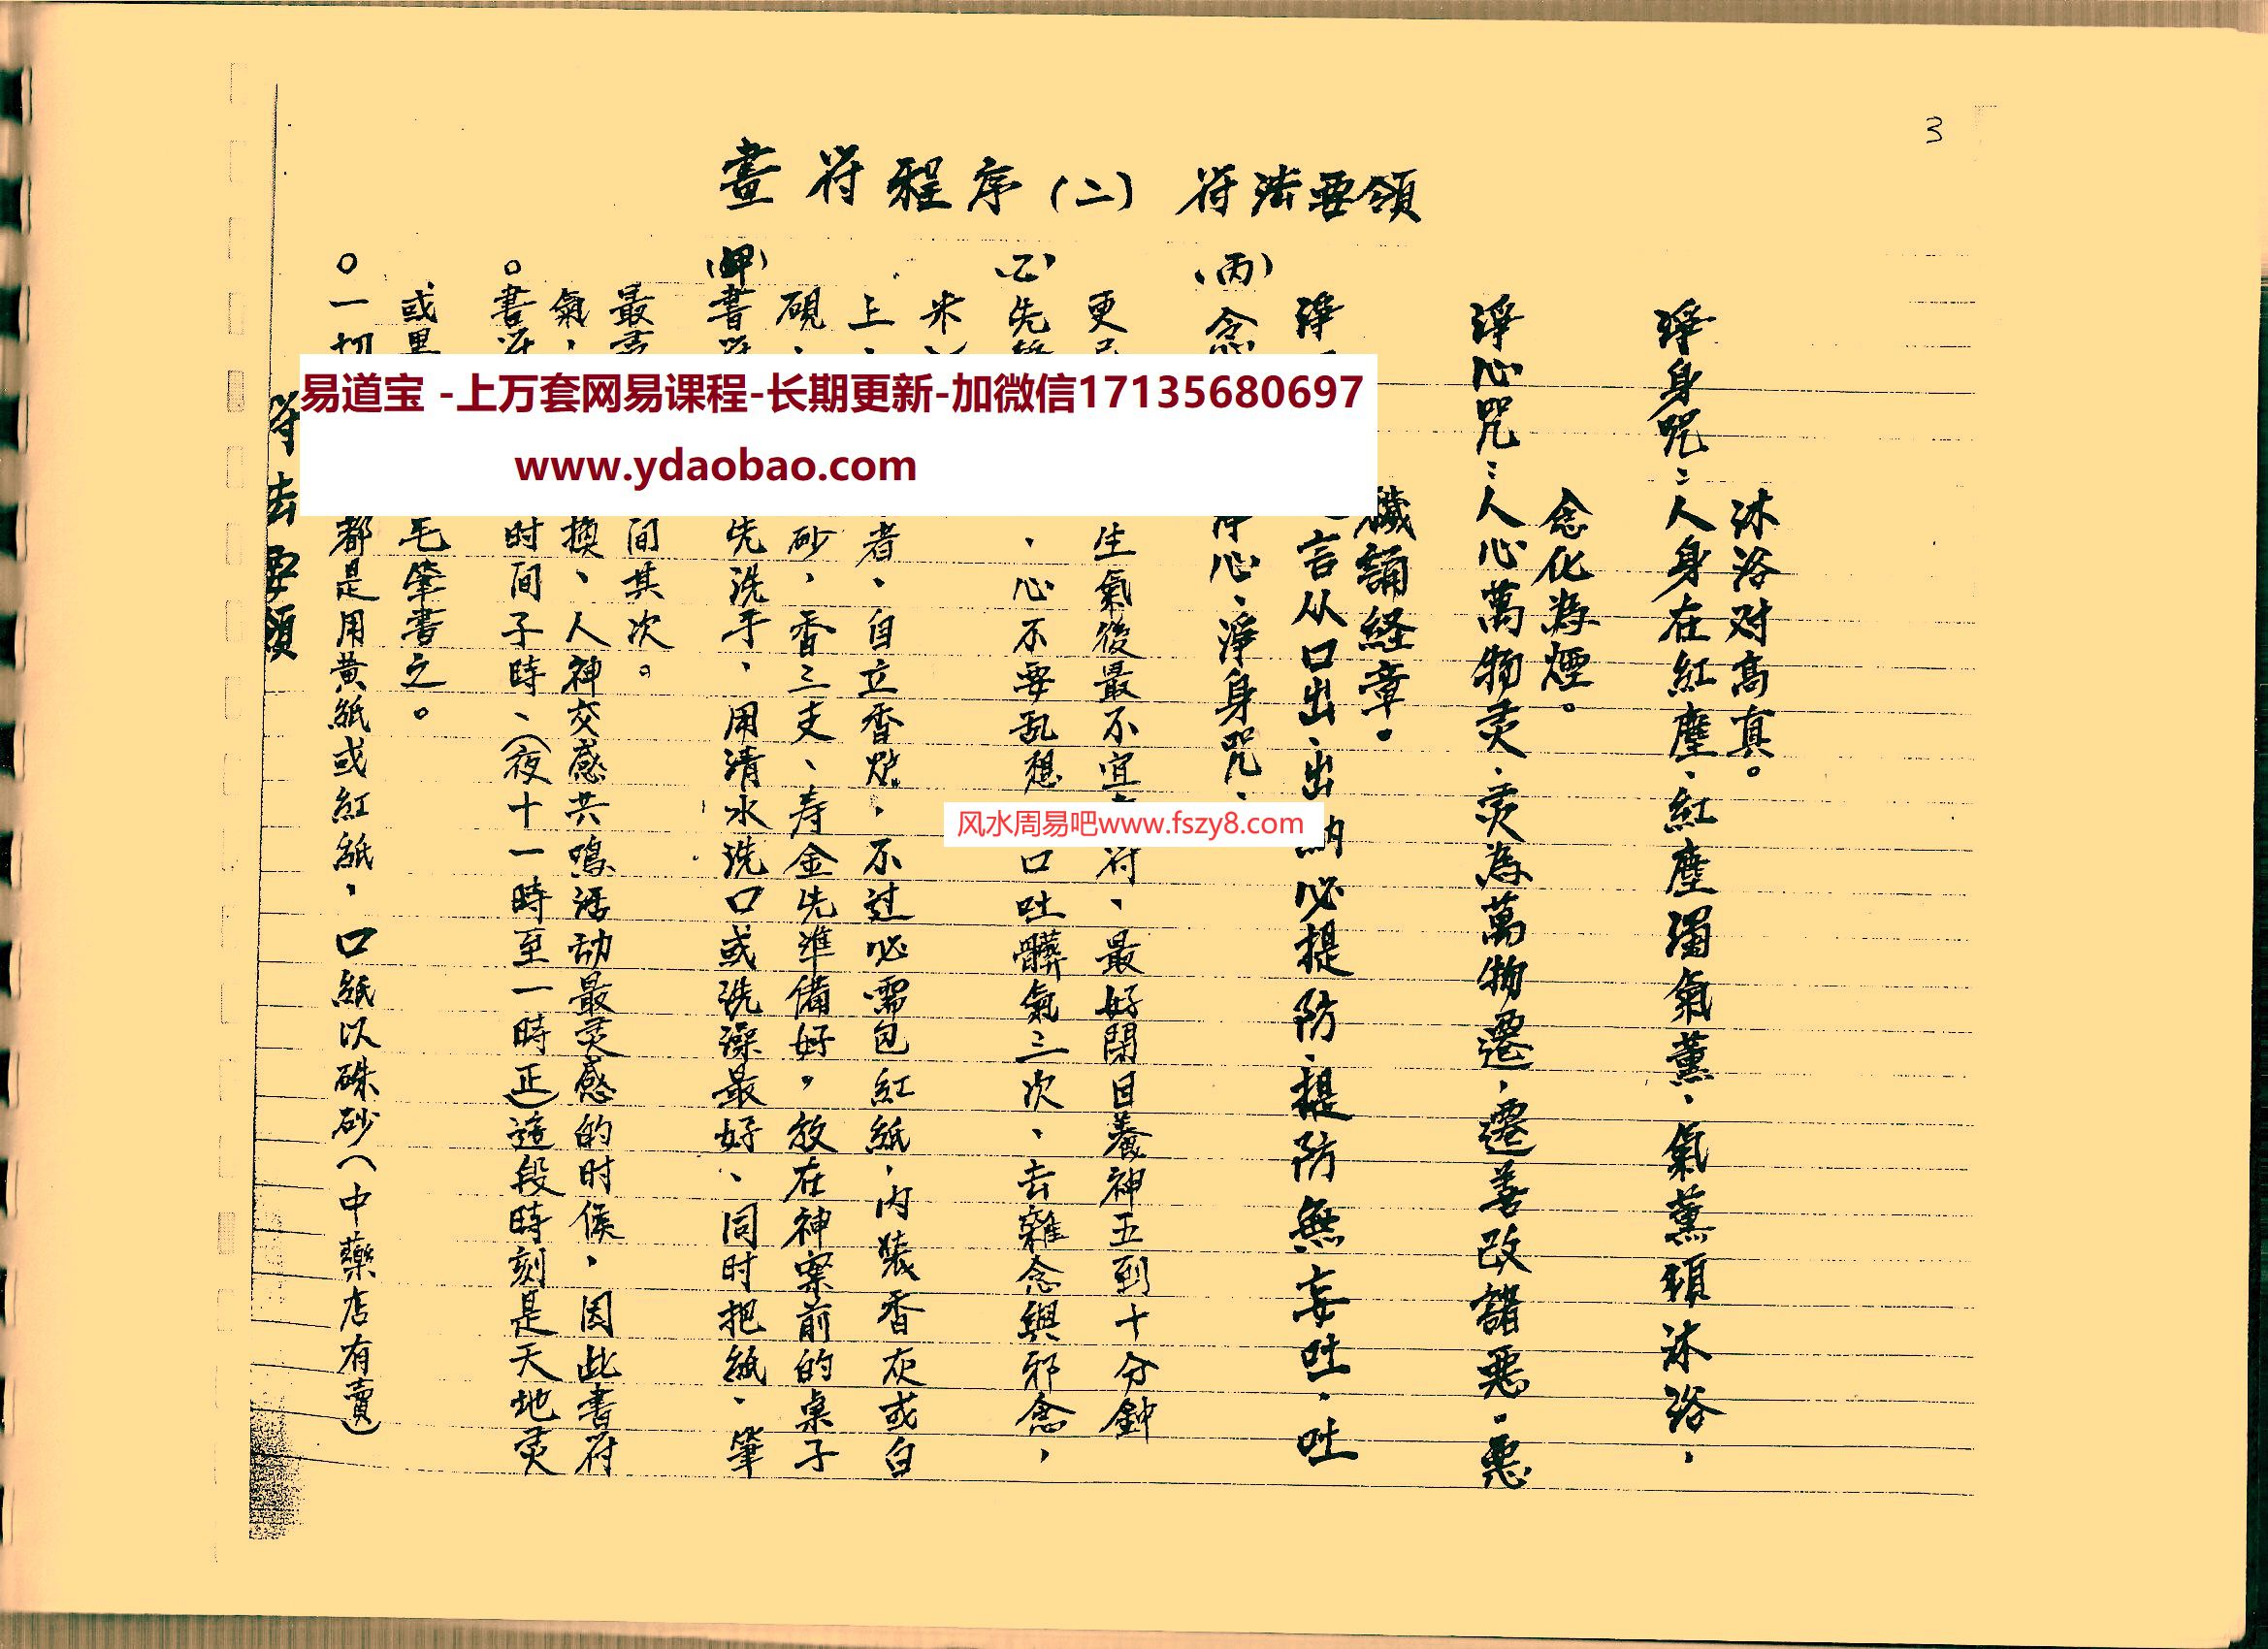 3
畫符程序(二) 符法要領
符法要領
○一切都是用黃紙或紅紙，口紙以硃砂(中藥店有賣)
或黑毛筆書之。
○書符时间子時、(夜十一時至一時正)這段時刻是天地灵
氣，換、人神交感共鳴活动最灵感的时候，因此書符
最灵间其次。
(甲)書符先洗手、用清水洗口或洗澡最好、同时把紙、筆
硯，砂，香三支、寿金先準備好，放在神案前的桌子
上，者、自立香炉，不过必需包紅紙，內裝香灰或白
米
(乙)先、心不要乱想口吐髒氣三次、去雜念與邪念，
更生氣後最不宜符、最好閉目養神五到十分鐘
(丙)念淨心、淨身咒、
淨言从口出、出納必提防、提防無妄吐、吐
穢誦経章。
淨心咒：人心萬物灵、灵為萬物遷、遷善改諸惡、惡
念化為煙。
淨身咒：人身在紅塵、紅塵濁氣薰、氣薰須沐浴、
沐浴对高真。
易道宝 -上万套网易课程-长期更新-加微信17135680697
www.ydaobao.com
风水周易吧www.fszy8.com